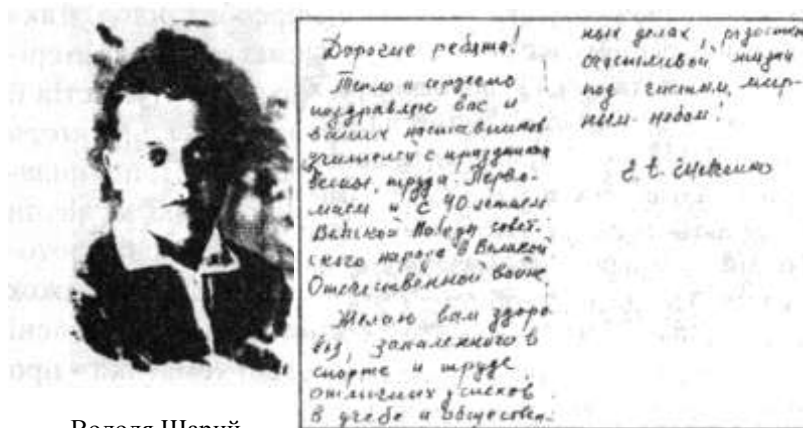 Дорогие ребята!
Тепло и сердечно
поздравляю вас и
ваших наставников
учителей с праздником
весны, труда Перво-
маем и с 40 летием
Великой Победы совет-
ского народа в Великой
Отечественной войне.
Желаю вам здоро
вья, закаленного в
спорте и труде
отличных успехов
в учебе и обществен-
ных делах, радостной
счастливой жизни
под чистым, мир-
ным небом!
Володя Шарий